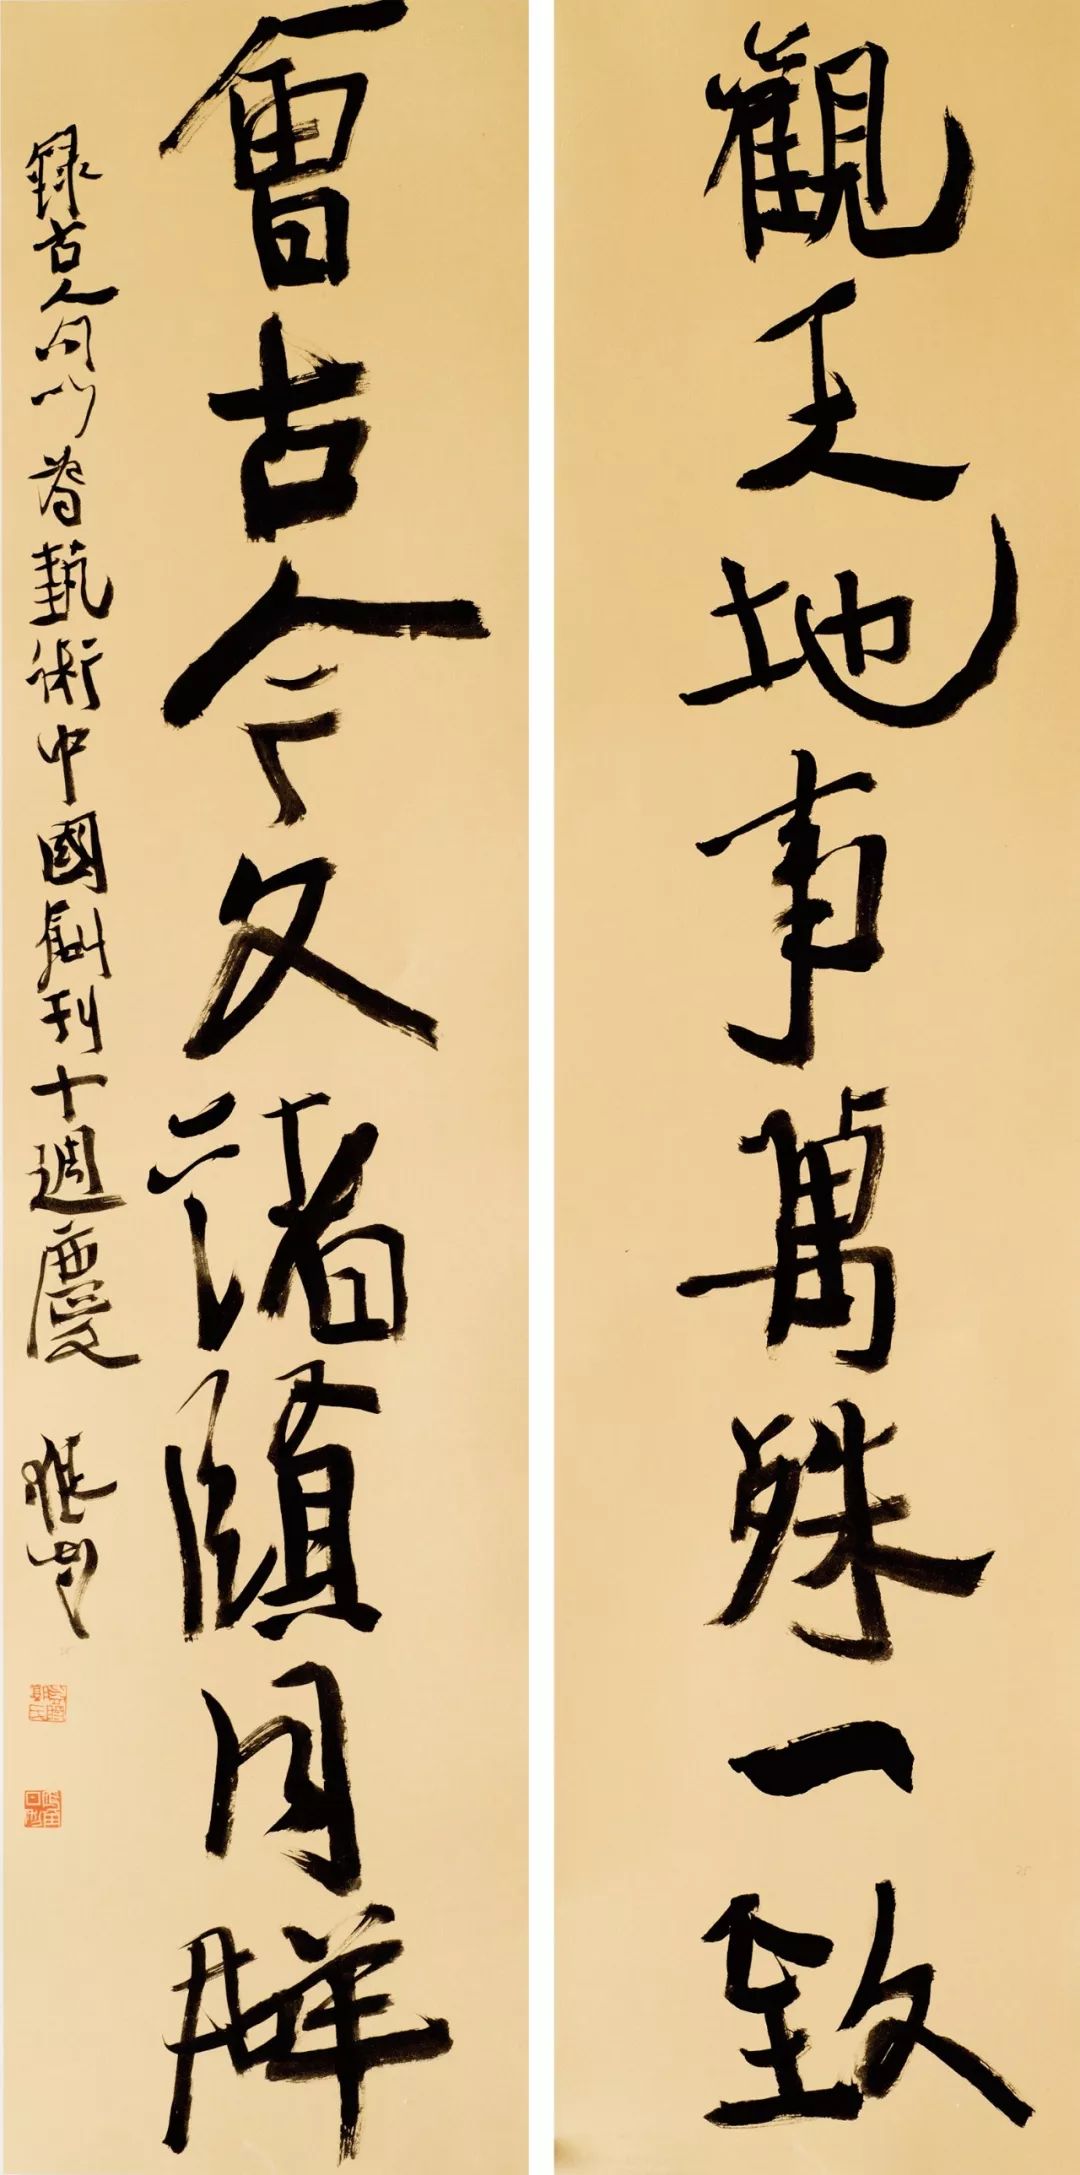 觀天地事萬殊一致
會古今文諸賾同
錄古人句以為藝術中國創刊十週慶